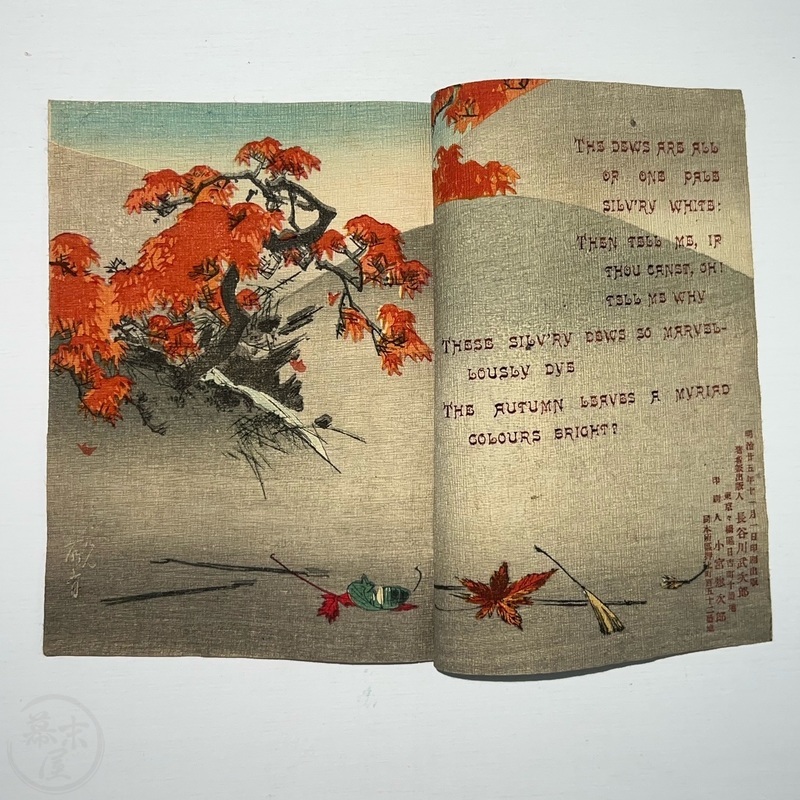 THE DEWS ARE ALL
OF ONE PALE
SILV'RY WHITE:
THEN TELL ME, IF
THOU CANST, OH!
TELL ME WHY
THESE SILV'RY DEWS SO MARVEL-
LOUSLY DYE
THE AUTUMN LEAVES A MYRIAD
COLOURS BRIGHT?
明治廿五年十一月一日印刷出版
出版人 長谷川武次郎
印刷人 小宮
幕末屋